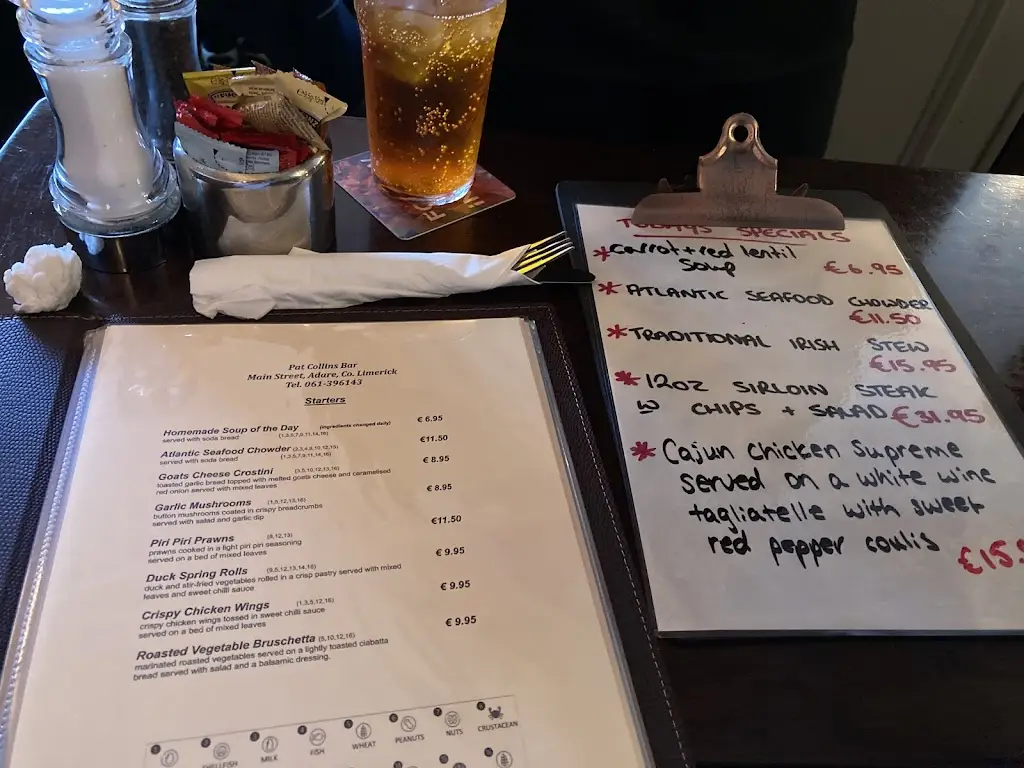 Pat Collins Bar
Main Street, Adare, Co. Limerick
Tel. 061-396143
Starters
Homemade Soup of the Day (ingredients changed daily) € 6.95
served with soda bread (1,3,5,7,9,11,14,16)
Atlantic Seafood Chowder €11.50
served with soda bread (1,3,5,7,9,11,14,16)
Goats Cheese Crostini (3,5,10,12,13,16) € 8.95
toasted garlic bread topped with melted goats cheese and caramelised
red onion served with mixed leaves
Garlic Mushrooms (1,5,12,13,16) € 8.95
button mushrooms coated in crispy breadcrumbs
served with salad and garlic dip
Piri Piri Prawns (8,12,13) €11.50
prawns cooked in a light piri piri seasoning
served on a bed of mixed leaves
Duck Spring Rolls € 9.95
duck and stir-fried vegetables rolled in a crisp pastry served with mixed
leaves and sweet chilli sauce
Crispy Chicken Wings (1,3,5,12,16) € 9.95
crispy chicken wings tossed in sweet chilli sauce
served on a bed of mixed leaves
Roasted Vegetable Bruschetta (5,10,12,16) € 9.95
marinated roasted vegetables served on a lightly toasted ciabatta
bread served with salad and a balsamic dressing.
1 2 3 4 5 6 7 8
SHELLFISH MILK FISH WHEAT PEANUTS NUTS CRUSTACEAN
TODAYS SPECIALS
*Carrot+red lentil
Soup €6.95
*ATLANTIC SEAFOOD CHOWDER
€11.50
*TRADITIONAL IRISH STEW
€15.95
*12OZ SIRLOIN STEAK
W CHIPS + SALAD €31.95
*Cajun chicken Supreme
served on a white wine
tagliatelle with sweet
red pepper coulis
€15.